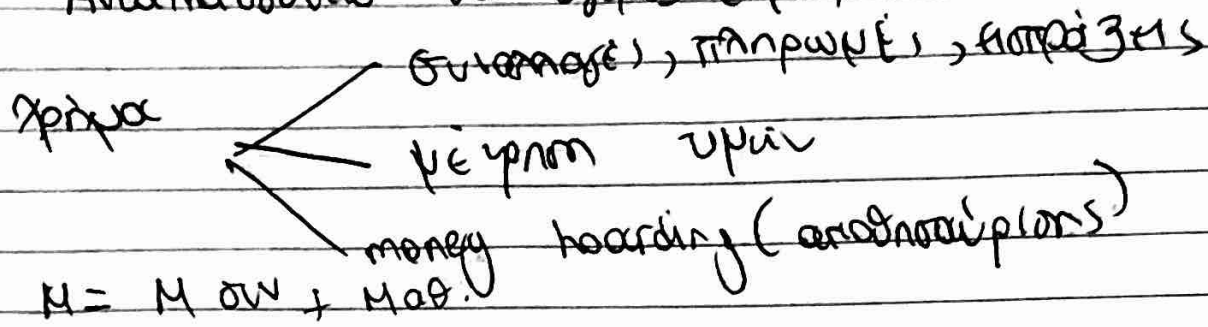 συναλλαγές, πληρωμές, εισπράξεις
χρήμα
μέτρηση τιμών
money hoarding (αποθησαύρισης)
M = M συν + M αθ.